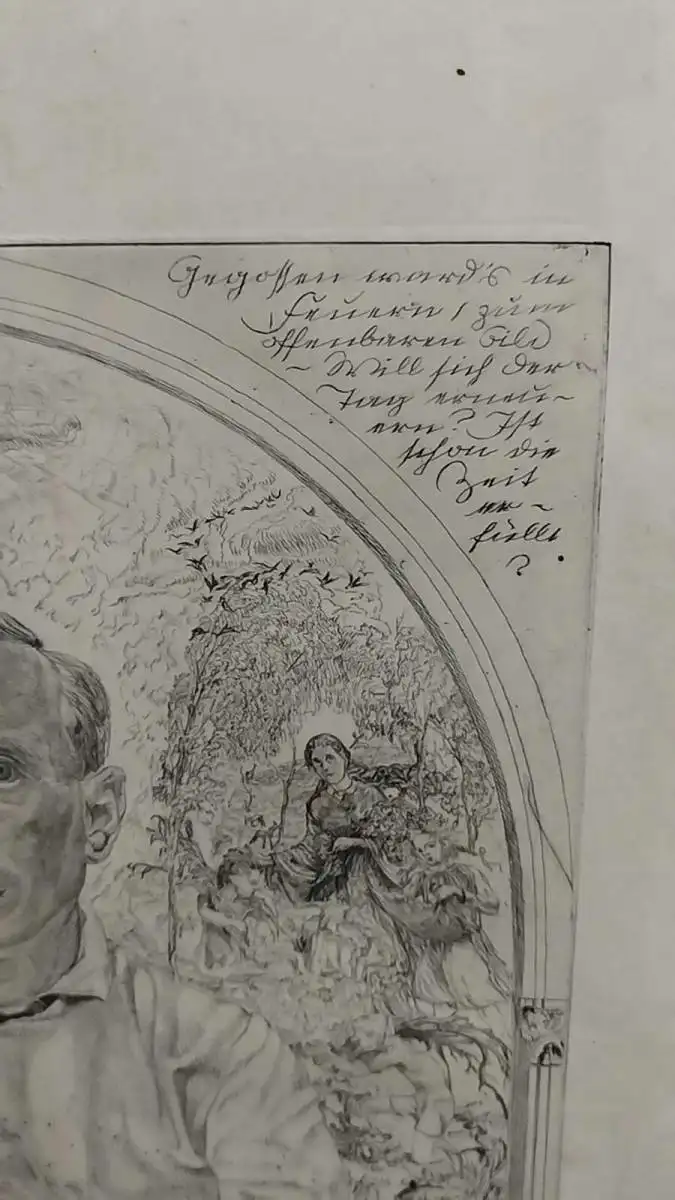 Gegossen ward's in
Feuern / zum
offenbaren Bild
~ Will sich der
Tag erneu~
ern? Ist
schon die
Zeit
er~
füllt
?